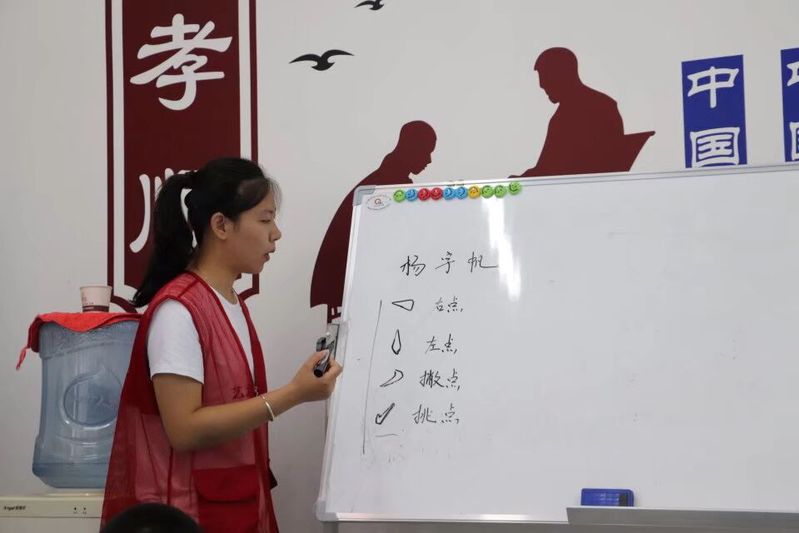 孝
中国
杨宇帆
右点
左点
撇点
挑点